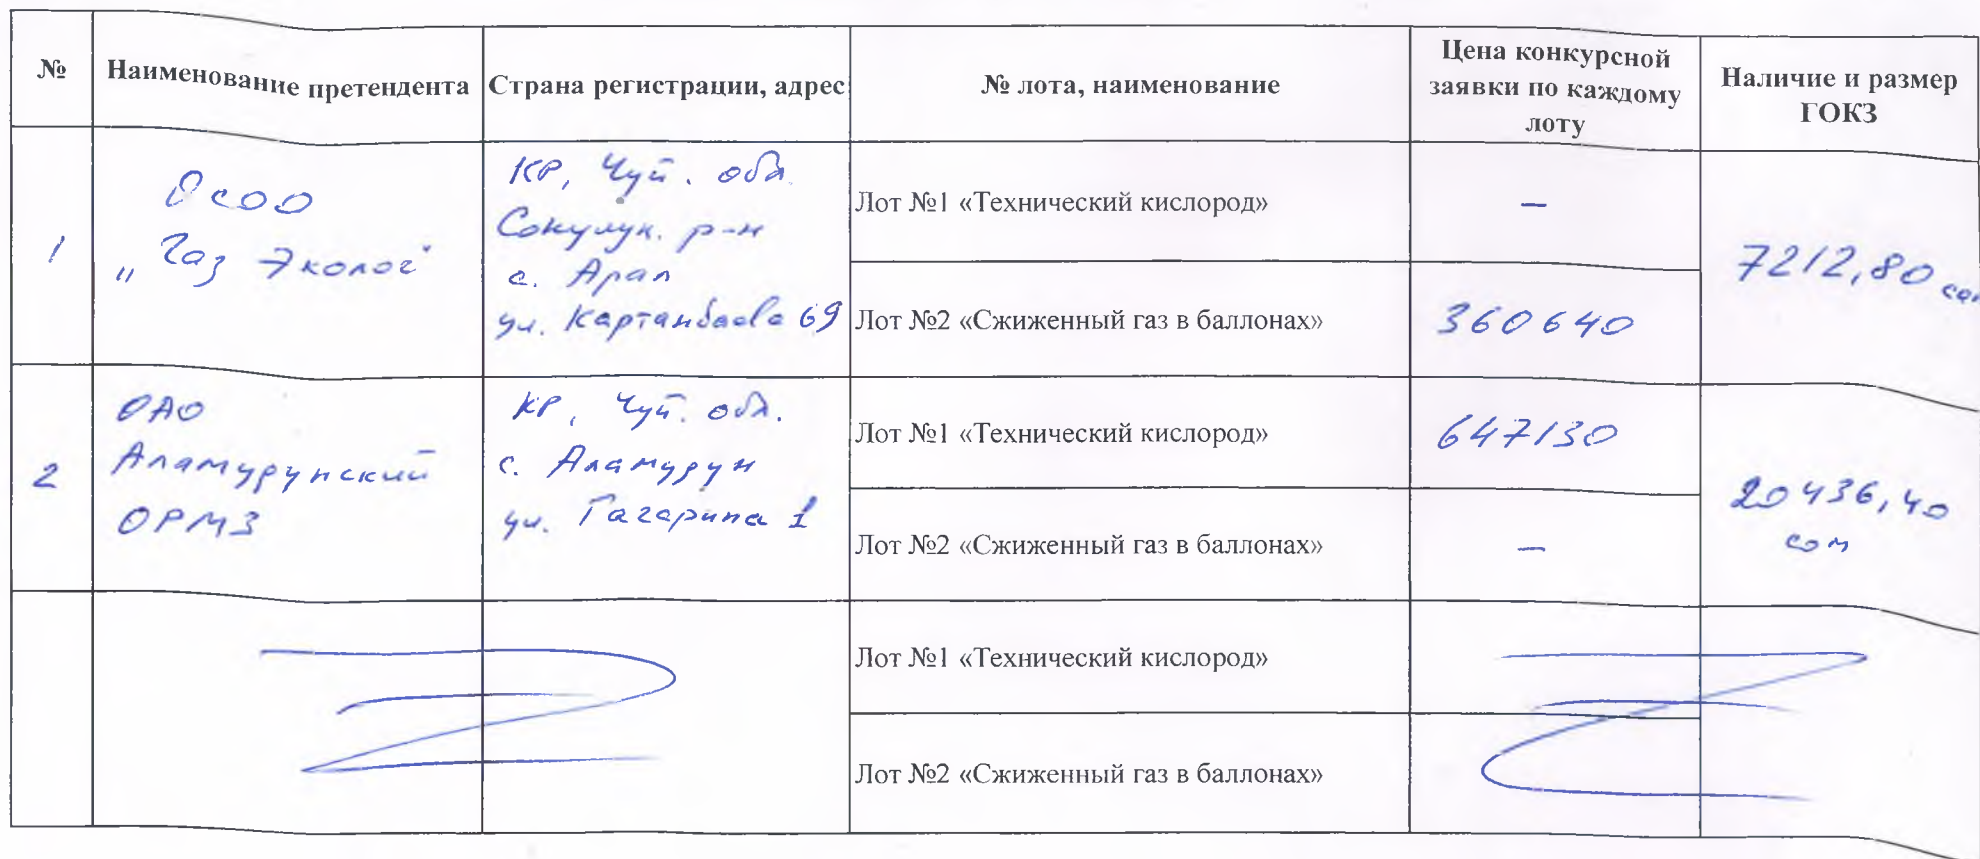 №
Наименование претендента
Страна регистрации, адрес
№ лота, наименование
Цена конкурсной
заявки по каждому
лоту
Наличие и размер
ГОКЗ
1
ОсОО
"Газ Эколог"
КР, Чуй. обл.
Сокулук. р-н
с. Арал
ул. Картанбаева 69
Лот №1 «Технический кислород»
–
Лот №2 «Сжиженный газ в баллонах»
360640
7212,80 сом
2
ОАО
Аламудунский
ОРМЗ
КР, Чуй. обл.
с. Аламудун
ул. Гагарина 1
Лот №1 «Технический кислород»
647130
Лот №2 «Сжиженный газ в баллонах»
–
20436,40
сом
Лот №1 «Технический кислород»
Лот №2 «Сжиженный газ в баллонах»